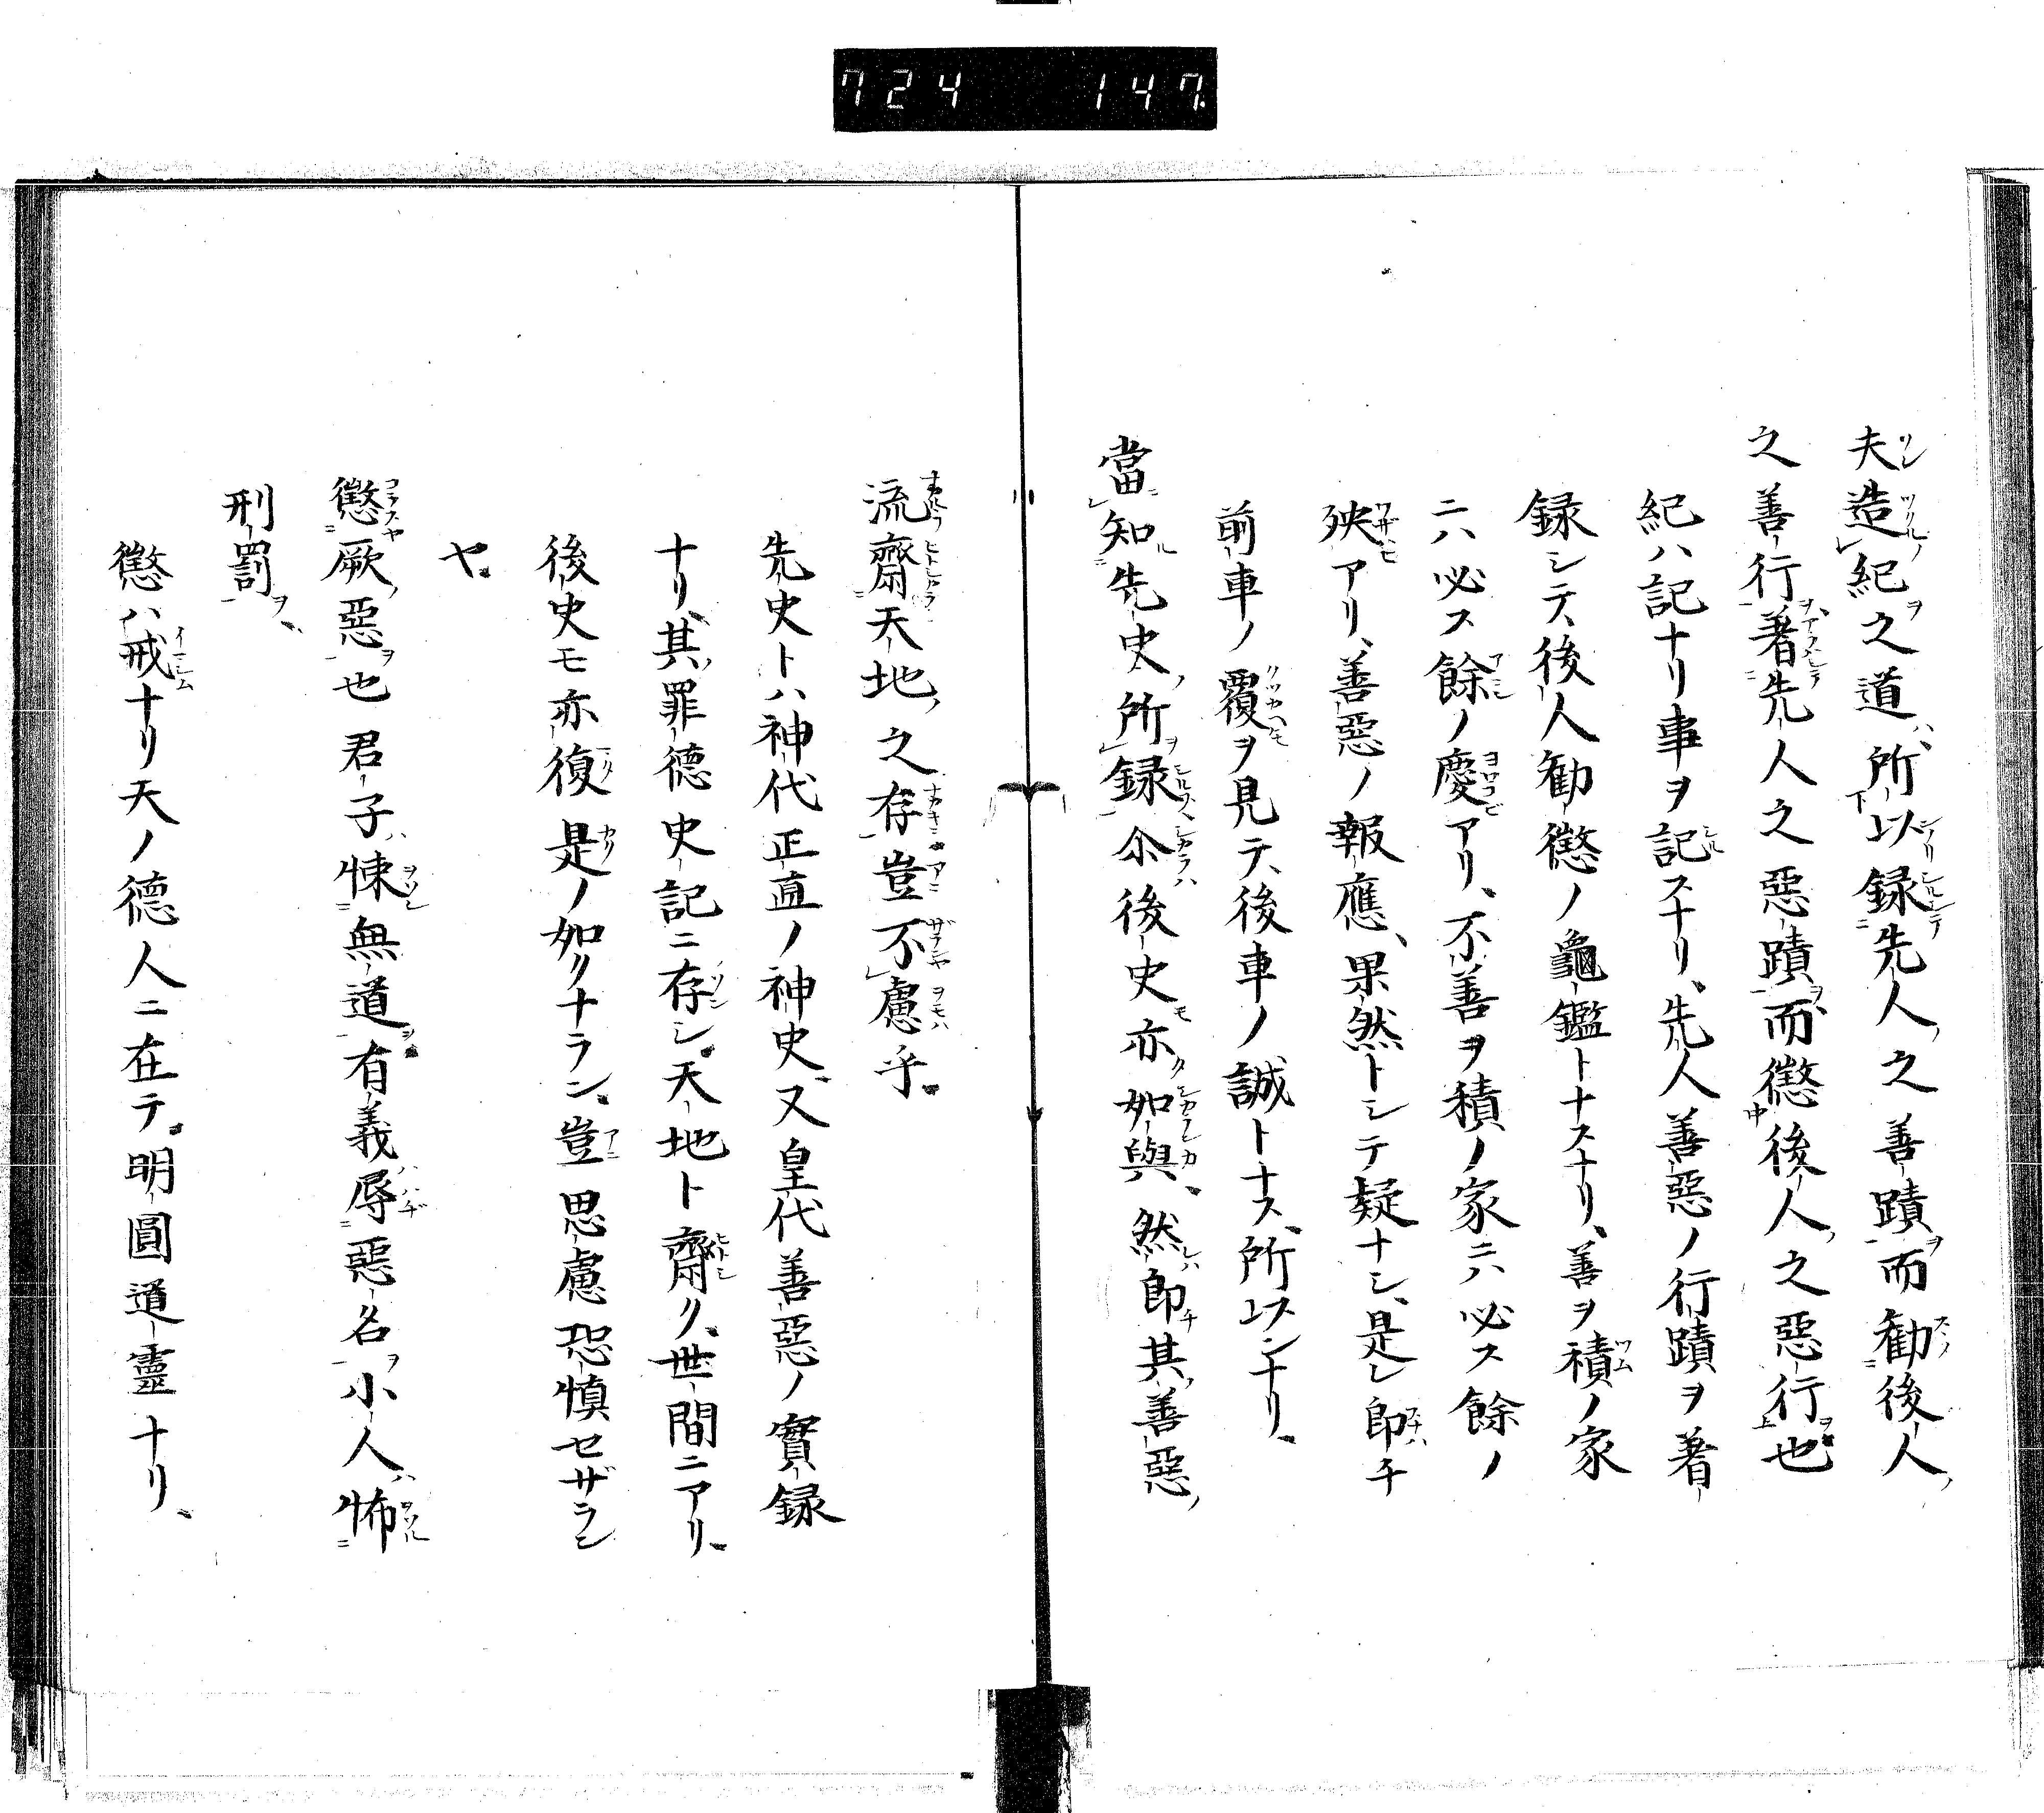 724 147
夫造紀之道所以録先人之善蹟而勸後人
之善行著先人之惡蹟而懲後人之惡行也
紀ハ記ナリ事ヲ記スナリ、先人善惡ノ行蹟ヲ著
録シテ、後人勸懲ノ龜鑑トナスナリ、善ヲ積ノ家
ニハ必ス餘ノ慶アリ、不善ヲ積ノ家ニハ必ス餘ノ
殃アリ、善惡ノ報應、果然トシテ疑ナシ、是レ即チ
前車ノ覆ヲ見テ、後車ノ誡トナス、所以ンナリ、
當知先史所録尒後史亦如與、然即其善惡
流齋天地之存豈不慮乎
先史トハ神代正直ノ神史、又皇代善惡ノ實録
ナリ、其罪德史記ニ存シ、天地ト齋ク、世間ニアリ、
後史モ亦復是ノ如クナラン、豈思慮恐愼セザラン
ヤ
懲厥惡也君子悚無道有義辱惡名小人怖
刑罰
懲ハ戒ナリ天ノ德人ニ在テ、明圓道靈ナリ、